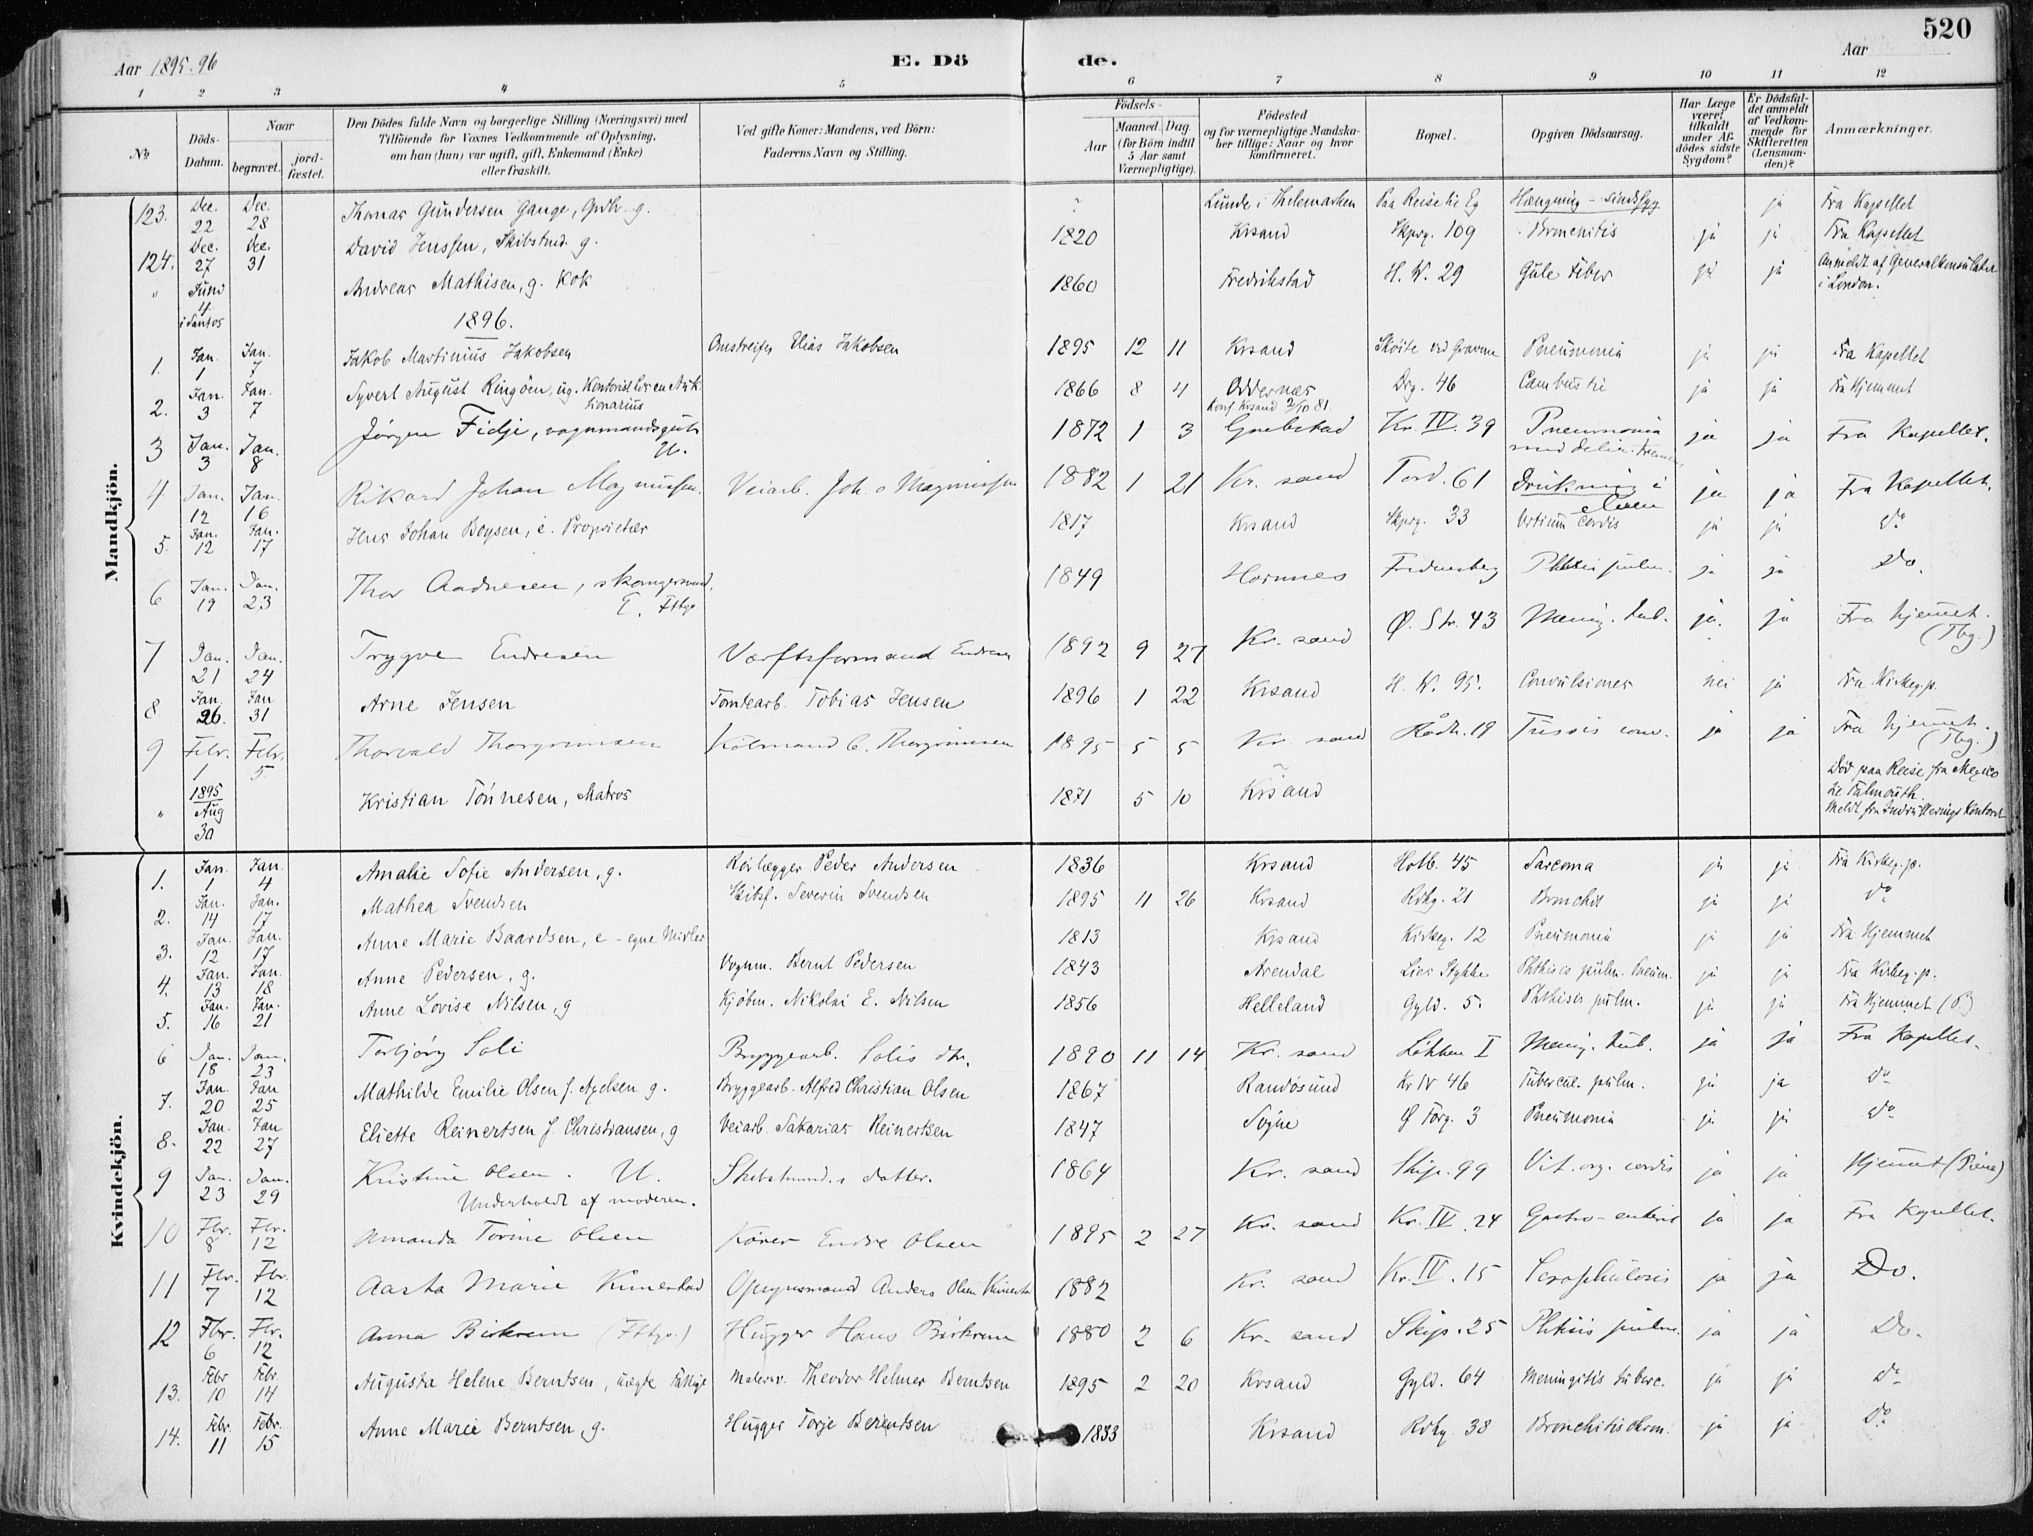 520
Aar 1895-96
E. Dö
de.
Aar
1 2 3 4 5 6 7 8 9 10 11 12
No
Döds-Datum.
Naar begravet. jord-fæstet.
Den Dödes fulde Navn og borgerlige Stilling (Næringsvei) med Tilföiende for Voxnes Vedkommende af Oplysning, om han (hun) var ugift, gift, Enkemand (Enke) eller fraskilt.
Ved gifte Koner: Mandens, ved Börn: Faderens Navn og Stilling.
Födsels-
Aar Maaned. Dag. (for Börn indtil 5 Aar samt Værnepligtige).
Födested og for værnepligtige Mandskaber tillige: Naar og hvor konfirmeret.
Bopæl.
Opgiven Dödsaarsag.
Har Læge været tilkaldt under Afdödes sidste Sygdom?
Er Dödsfaldet anmeldt af Vedkommende for Skifteretten (Lensmanden)?
Anmærkninger.
Mandkjön.
123. Dec. 22 Dec. 28 Thomas Gundersen Gauge, g. ? Lunde i Thelemarken Paa Reise til Eg Hængning - Sindssyg ja Fra Kapellet
124. Dec. 27 Dec. 31 David Jenssen, Skibstmd. g. 1820 Krsand Skprg. 109 Bronchitis ja ja Fra Kapellet
" Juni 4 i Santos Andreas Mathisen, g. Kok 1860 Fredrikstad H. W. 29 Gule Feber ja ja Anmeldt af Generalkonsulatet i London.
1896.
1. Jan. 1 Jan. 7 Jakob Martinius Jakobsen Omstreifer Elias Jakobsen 1895 12 11 Krsand Skøite ved Gravene Pneumonia ja ja Fra Kapellet
2. Jan. 3 Jan. 7 Syvert August Ringöen, ug. Kontorist hos en Auktionarius 1866 8 4 Oddernæs Konf. Krsand 2/10 81. Drg. 46 Combustio ja ja Fra Hjemmet
3 Jan. 3 Jan. 8 Jørgen Fidje, vognmandsgut U. 1872 1 3 Kr. IV. 39 Pneumonia med delir. tremens ja ja Fra Kapellet.
4 Jan. 12 Jan. 16 Rikard Johan Magnussen. Veiarb. Joh. Magnussen 1882 1 21 Kr. sand Tord. 61 Drukning i Elven ja ja Fra Kapellet.
5. Jan. 12 Jan. 17 Jens Johan Boysen, e. Proprietær 1817 Krsand Skprg. 33 Vitium cordis ja ja do
6 Jan. 19 Jan. 23 Thor Aadnesen, E. Fttgv. 1849 Hornnes Phthisis pulm. ja ja Do.
7 Jan. 21 Jan. 24 Trygve Endresen Værftsformand Endresen 1892 9 27 Kr. sand Ø. Str. 43 Mening. tub. ja. ja Fra hjemmet. (Tbg.)
8 Jan. 26. Jan 31 Arne Jensen Tomtearb. Tobias Jensen 1896 1 22 Krsand H. W. 95. Convulsiones nei ja Fra Kirkeg.p.
9 Febr. 1 Febr. 5 Thorvald Thorgrimsen Kolmand C. Thorgrimsen 1895 5 5 Kr. sand Rådh. 19 Tussis conv. ja ja Fra hjemmet. (Tbg.)
" 1895 Aug 30 Kristian Tönnesen, Matros 1871 5 10 Krsand Död paa Reise fra Mexico til Falmouth. Meldt fra Indrulleringskontoret
Kvindekjön.
1. Jan. 1 Jan. 4 Amalie Sofie Andersen, g. Rörlægger Peder Andersen 1836 Krsand Holb. 45 Sarcoma ja ja Fra Kirkeg.p.
2. Jan. 14 Jan. 17 Mathea Svendsen Skibsf. Severin Svendsen 1895 11 26 Krsand Rdhg. 21 Bronchit ja ja do
3. Jan. 12 Jan. 17 Anne Marie Baardsen, e - egne Midler 1813 Krsand Kirkeg. 12 Pneumonia ja ja Fra Hjemmet
4. Jan. 13 Jan. 18 Anne Pedersen, g. Vognm. Bernt Pedersen 1843 Arendal Lies Stykke Phthisis pulm. Pneum. ja ja Fra Kirkeg.p.
5. Jan. 16 Jan. 21 Anne Lovise Nilsen, g Kjöbm. Nikolai E. Nilsen 1856 Helleland Gyld. 5. Phthisis pulm. ja ja Fra Hjemmet (P.)
6 Jan. 18 Jan. 23 Torbjörg Soli Bryggearb. Solis dtr. 1890 11 14 Kr. sand Løkken I Mening. tub. ja ja Fra Kapellet.
7. Jan. 20 Jan 25 Mathilde Emilie Olsen f. Axelsen g. Bryggearb. Alfred Christian Olsen 1867 Randösund Kr IV 46 Tubercul. pulm. ja ja do
8. Jan. 22 Jan 27 Eliette Reinertsen f. Christiansen, g Veiarb. Sakarias Reinertsen 1847 Sögne Ø Torg. 3 Pneumonia ja ja do
9 Jan. 23 Jan. 29 Kristine Olsen. U. Underholdt af moderen. Skibstmd.s datter. 1864 Kr. sand Skip. 99 Vit. org. cordis ja ja Hjemmet (Piene)
10 Fbr. 8 Fbr. 12 Amanda Torine Olsen Kører Endre Olsen 1895 2 27 Kr. sand Kr. IV. 24 Gastro-enterit ja ja Fra Kapellet.
11 Fbr. 7 Fbr. 12 Aasta Marie Kimestad Opsynsmand Anders Olsen Kimestad 1882 Kr. sand Kr. IV. 15 Scrophulosis ja ja Do.
12 Fbr. 6 Fbr. 12 Anna Birkrem (Fttgv.) Hugger Hans Birkrem 1880 2 6 Kr. sand Skip. 25 Phthisis pulm. ja ja Do.
13. Febr 10 Febr. 14 Augusta Helene Berntsen, uægte Fattigv Malersv. Theodor Helmer Berntsen 1895 2 20 Krsand Gyld. 64 Meningitis tuberc. ja ja do
14. Febr. 11 Febr. 15 Anne Marie Berntsen, g. Hugger Torje Berentsen 1833 Krsand Rdhg. 38 Bronchitis chron. ja ja do